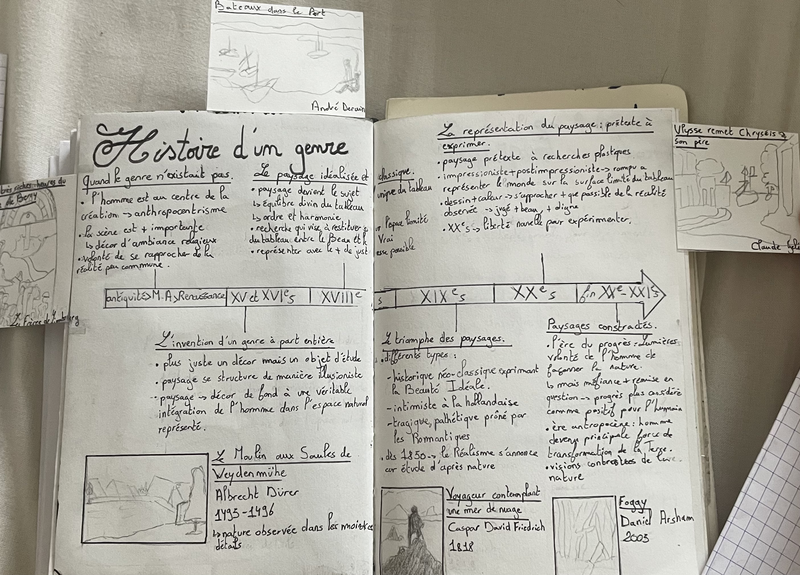 Bateaux dans le Port
André Derain
Histoire d'un genre
Quand le genre n'existant pas.
l'homme est au centre de la
création → anthropocentrisme
• la scène est + importante
↳ décor d'ambiance religieux
• volonté de se rapprocher de la
réalité peu commune.
Le paysage idéalisé et
• paysage devient le sujet
↳ équilibre divin du tableau
↳ ordre et harmonie
• recherche qui vise à restituer
du tableau entre le Beau et
• représenter avec le + de just
classique.
unique du tableau
l'époque limité
Vrai
esse possible
La représentation du paysage : prétexte à
exprimer.
• paysage prétexte à recherches plastiques
• impressioniste + postimpressioniste → rompu à
représenter le monde sur la surface limité du tableau
• dessin + couleur → s'approcher + que possible de la réalité
observée → jugé + beau, + digne
• XXe s → liberté nouvelle pour expérimenter.
Ulysse remet Chryséis à
son père
Claude
antiquité → M.A → Renaissance
XV et XVIe s
XVIIIe
s
XIXe s
XXe s
fin XXe - XXIe s
L'invention d'un genre à part entière
• plus juste un décor mais un objet d'étude
• paysage se structure de manière illusioniste
• paysage → décor de fond à une véritable
intégration de l'hommme dans l'espace naturel
représenté.
Le triomphe des paysages.
• différents types :
- historique néo-classique exprimant
la Beauté Idéale.
- intimiste à la hollandaise
- tragique, pathétique prôné par
les Romantiques
• dès 1850 → le Réalisme s'annonce
car étude d'après nature
Paysages constrastés.
• l'ère du progrès: lumières
volonté de l'homme de
façonner la nature.
↳ mais méfiance + remise en
question → progrès plus considéré
comme positif pour l'humain
• ère antropocène: homme
devenu principale force de
transformation de la Terre.
• visions contrastées de
nature
Le Moulin aux Saules de
Weydenmühe
Albrecht Dürer
1495 - 1496
↳ nature observée dans les moindres
détails
Voyageur contemplant
une mer de nuage
Caspar David Friedrich
1818
Foggy
Daniel Arsham
2003